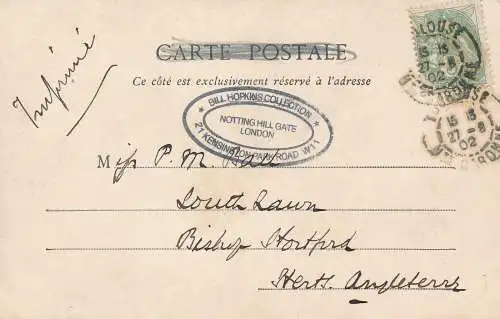 CARTE POSTALE
Ce côté est exclusivement réservé à l'adresse
Imprimé
BILL HOPKINS COLLECTION
NOTTING HILL GATE
LONDON
21 KENSINGTON PARK ROAD W11
15 15
27 - 8
02
15 15
27 - 8
02
Miss P. M.
South Lawn
Bishop Stortford
Herts. Angleterre